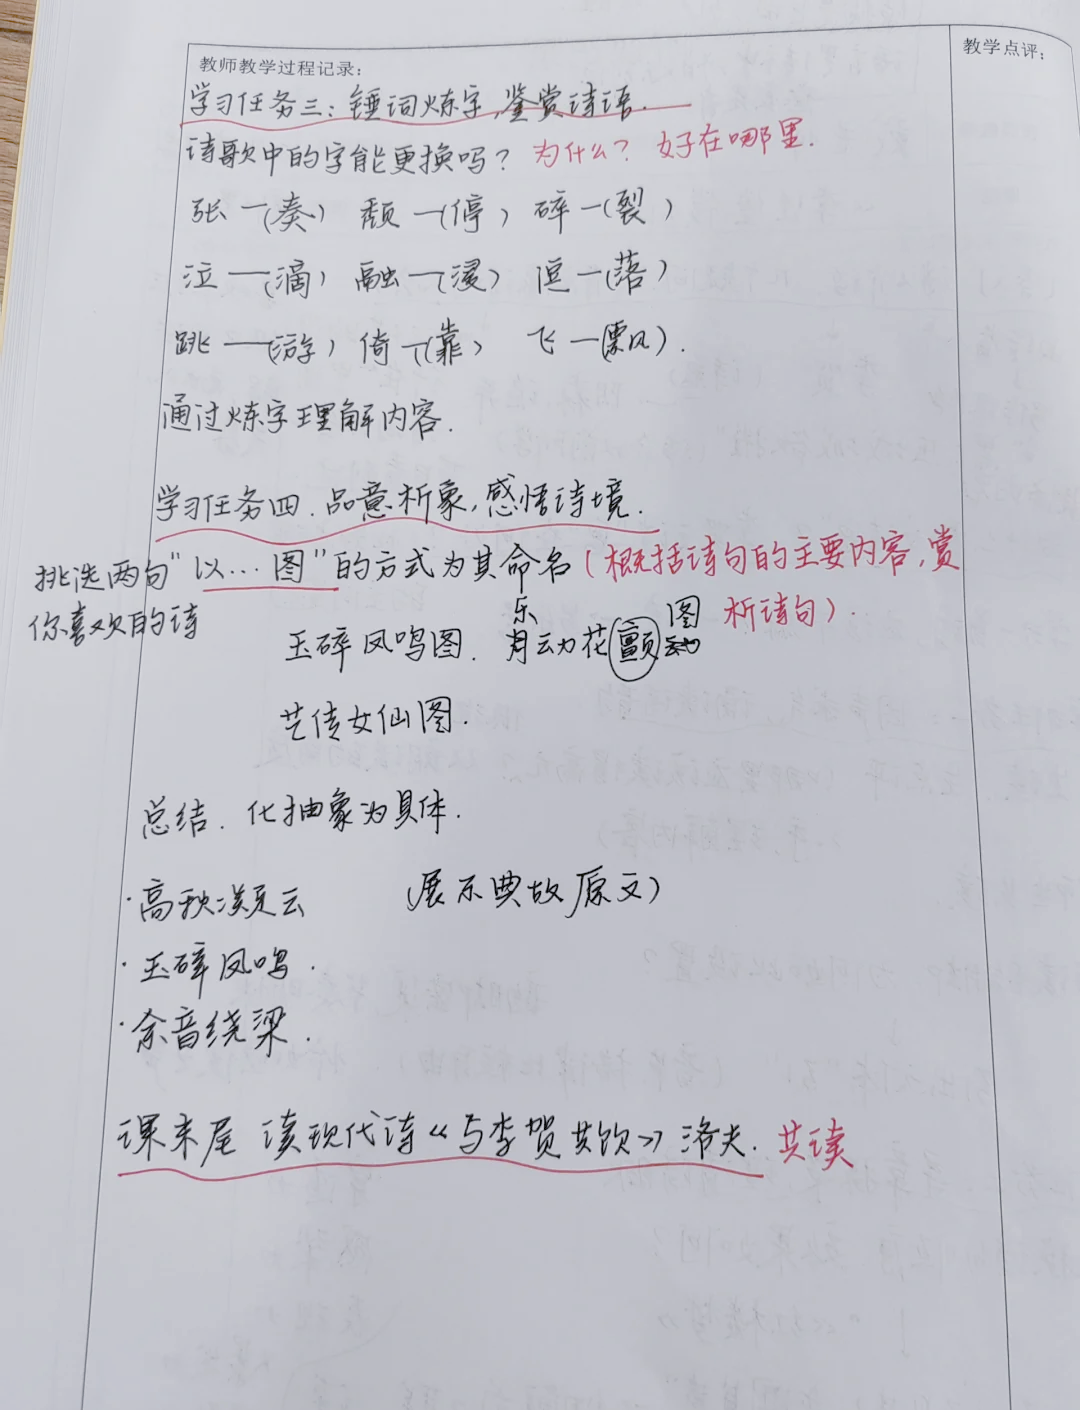 教师教学过程记录：
教学点评：
学习任务三：锤词炼字，鉴赏诗语．
诗歌中的字能更换吗？为什么？ 好在哪里．
张—（奏） 颓—（停） 碎—（裂）
泣—（滴） 融—（浸） 逗—（落）
跳—（游） 倚—（靠） 飞—（飘）．
通过炼字理解内容．
学习任务四．品意析象，感悟诗境．
挑选两句“以…图”的方式为其命名（概括诗句的主要内容，赏
你喜欢的诗
析诗句）．
乐 图
玉碎凤鸣图． 月动花颤
艺传女仙图．
总结． 化抽象为具体．
·高秋凝云 （展示典故原文）
·玉碎凤鸣．
·余音绕梁．
课末尾 读现代诗《与李贺共饮》洛夫． 共读